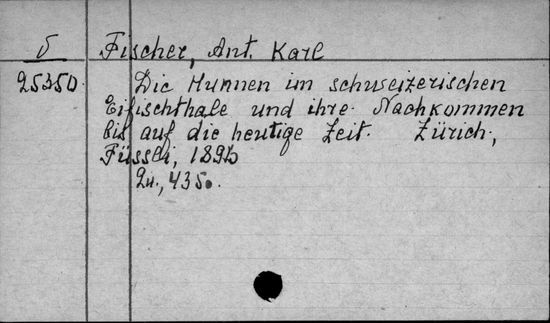 5
Fischer, Ant. Karl
25350.
Die Hunnen im schweizerischen
Eifischthale und ihre Nachkommen
bis auf die heutige Zeit. Zürich,
Füssli, 1896
435.